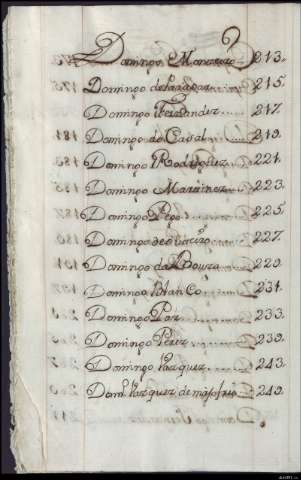 Domingo 213.
Domingo de 215.
Domingo Fernandez 217.
Domingo do Casal 219.
Domingo Rodriguez 221.
Domingo Martinez 223.
Domingo Pego 225.
Domingo 227.
Domingo da Bouza 229.
Domingo Blanco 231.
Domingo Paz 233.
Domingo Perez 239.
Domingo Vazquez 243.
Dom.º Vazquez de 249.